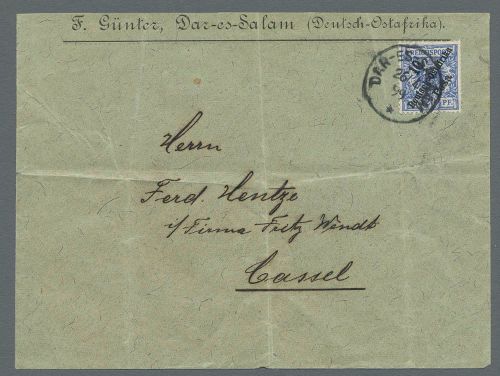 F. Günter, Dar-es-Salam (Deutsch-Ostafrika).
REICHSPOST
DAR-ES
Herrn
Ferd. Hentze
i/ Firma Fritz Wendt
Cassel